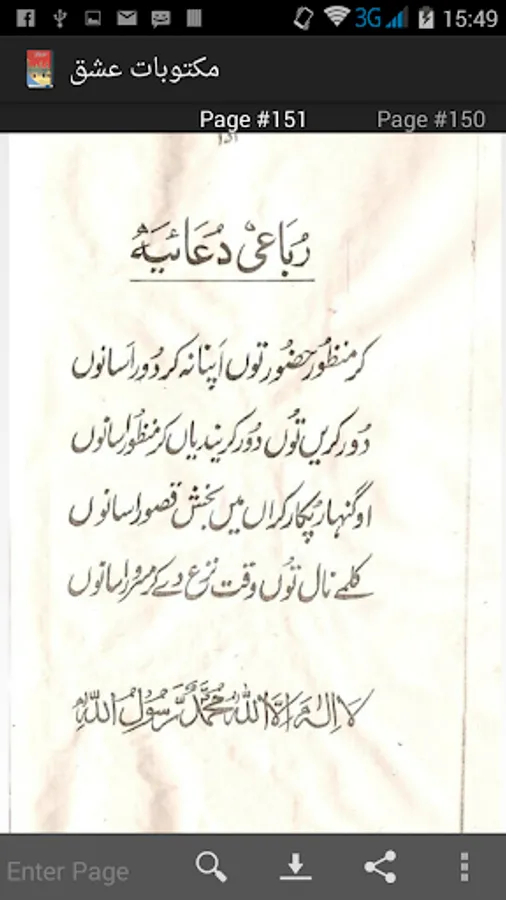 15:49
3G
مکتوبات عشق
Page #151
Page #150
رُبَاعیْ دُعَائیَہ
کر منظور حضور توں اپنا نہ کر دور اسانوں
دور کریں توں دور کریندیاں کر منظور اسانوں
اوگنہار پکار کراں میں بخش قصور اسانوں
کلمے نال توں وقت نزع دے کر مسرور اسانوں
لَا اِلٰہَ اِلَّا اللّٰہُ مُحَمَّدٌ رَّسُوْلُ اللّٰہِ
Enter Page